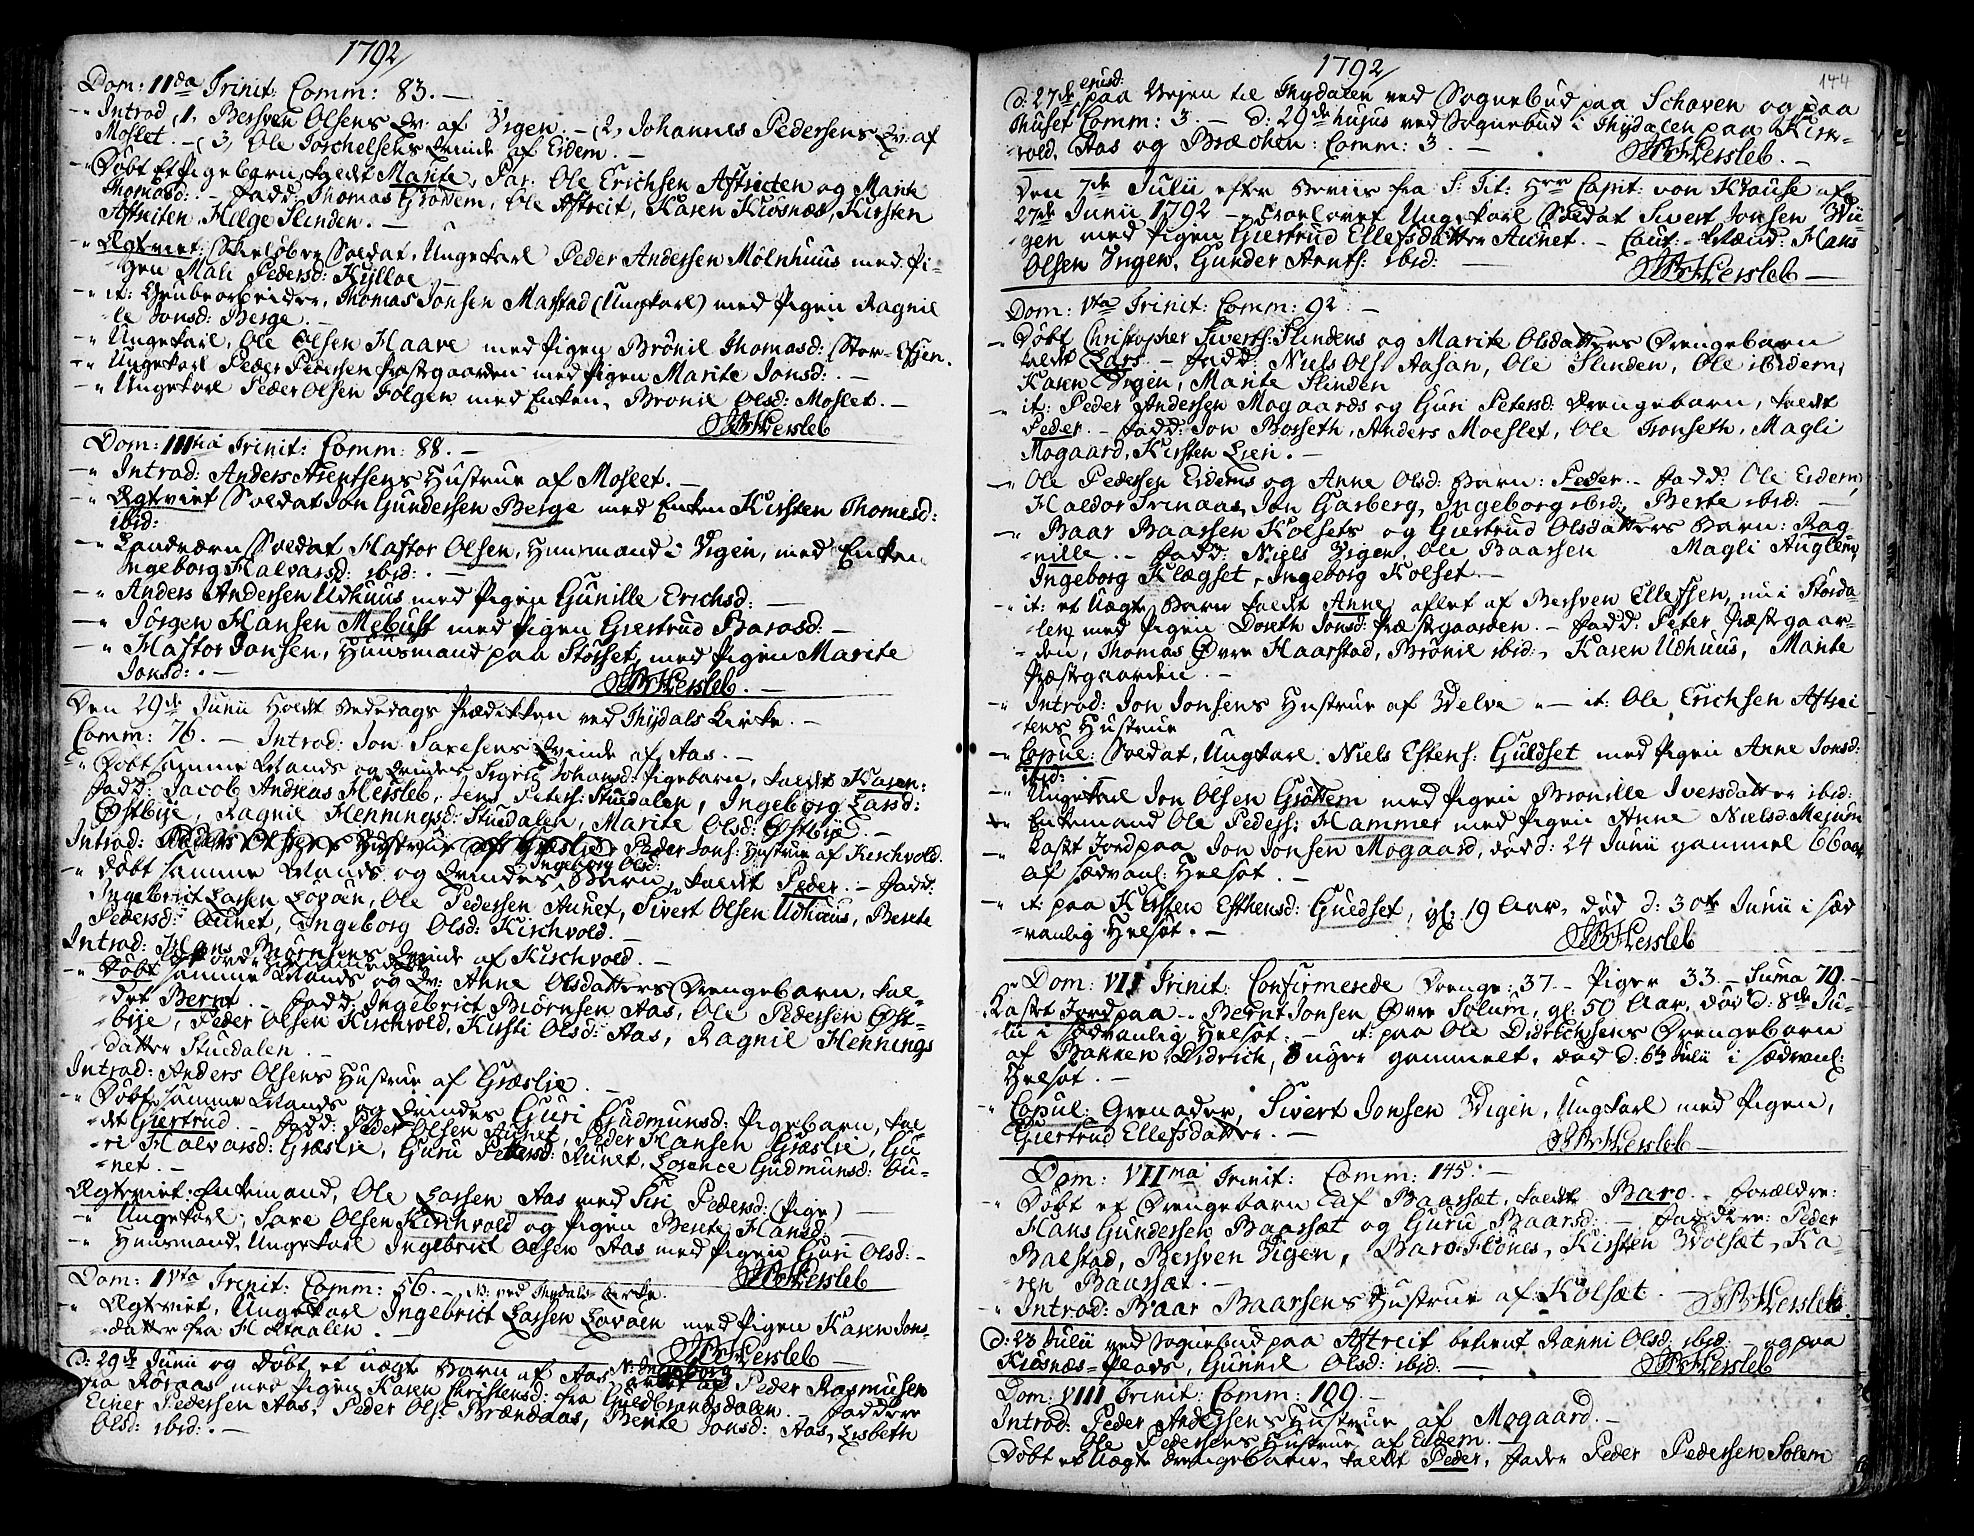 1792
Dom: IIda Trinit: Comm: 83. —
-" Introd, 1, Bersven Olsens Qv: af Vigen. - (2, Johannes Pedersens Qv: af
Moslet. - (3, Ole Torchelsens Qvinde af Eidem. —
-" Døbt Et Pigebarn, kaldt Marite, Par. Ole Erichsen Aftreiten og Marite
Thomasd: . - Fadd: Thomas Grødem, Ole Aftreit, Karen Kiøsnæs, Kirsten
Aftreiten, Helge Slinden. —
-" Ægtviet: Skieløber Soldat, Ungekarl Peder Andersen Mølnhuus med Pi-
gen Mali Pedersd: Kylloe —
-" it: Grubearbeider, Thomas Jonsen Mastad (Ungkarl) med Pigen Ragnil
le Jonsd: Berge. —
-" Ungekarl, Ole Olsen Haare med Pigen Brønil Thomasd: Stor-Evjen.
-" Ungekarl Peder Pedersen Præstgaarden med Pigen Marite Jonsd: . —
-" Ungekarl Peder Olsen Følgen med Enken, Bronil Olsd: Moslet. —
JBHersleb
Dom: IIItia Trinit: Comm: 88. —
-" Introd: Anders Arentsens Hustrue af Moslet. —
-" Ægtviet Soldat Jon Gundersen Berge med Enken Kirsten Thomesd:
ibid:
-" Landværn Soldat Hastor Olsen, Huusmand i Vigen, med Enken
Ingeborg Halvarsd: ibid: . —
-" Anders Andersen Udhuus med Pigen Gunille Erichsd: —
-" Jørgen Hansen Mebust med Pigen Giertrud Barosd: —
-" Hastor Jonsen, Huusmand paa Stokset, med Pigen Marite
Jonsd: . —
JBHersleb. —
Den 29de Junii Holdt Bededags Prædikken ved Thydals Kirke. —
Comm: 76. — Introd: Jon Saxesens Qvinde af Aas. —
-" Døbt samme Mands og Qvindes Sigrid Johansd: Pigebarn, kaldt Karen:
Fadd: Jacob Andreas Hersleb, Jens Peters: Stuedalen, Ingeborg Larsd:
Østbye, Ragnil Henningsd: Stuedalen, Marite Olsd: Østbye. —
Introd: Peder Jons: Hustrue af Kirchvold.
-" Døbt samme Mands og Qvindes Ingeborg Olsd: Barn, kaldt Peder. - Fadd:
Ingebrict Larsen Løvøen, Ole Pedersen Aunet, Sivert Olsen Udhuus, Berete
Pedersd: Aunet, Ingeborg Olsd: Kirchvold. —
Introd: Hans Biørnsens Qvinde af Kirchvold. —
-" Døbt samme Mands og Qv: Anne Olsdatters Drengebarn, kal-
det Bernt. - Fadd: Ingebrict Biørnsen Aas, Ole Pedersen Øst-
bye, Peder Olsen Kirchvold, Kirsti Olsd: Aas, Ragnil Hennings
datter Stuedalen. —
Introd: Anders Olsens Hustrue af Græslie. —
-" Døbt samme Mands og Qvindes Guri Gudmunsd: Pigebarn, kal-
dt Giertrud. - Fadd: Peder Olsen Aunet, Peder Hansen Græslie, Gu
ri Halvarsd: Græslie, Guru Petersd: Aunet, Lorence Gudmunsd: Au-
net. —
Ægtviet: Enkemand, Ole Larsen Aas med Siri Pedersd: (Pige) —
-" Ungekarl, Saxe Olsen Kirchvold og Pigen Berte Hansd:
-" Huusmand, Ungekarl Ingebrict Olsen Aas med Pigen Guri Olsd: -
JBHersleb
Dom: IVta Trinit: Comm: 56. - NB: ved Thydals Kirke.
-" Ægtviet, Ungekarl Ingebrict Larsen Løvøen med Pigen Karen Jons-
datter fra Horsaalen. —
JBHersleb —
d: 29de Junii og Døbt et uægte Barn af Aas N: Ingeborg
fra Røraas med Pigen Karen Christensd: fra Guldbrandsdalen. Peder Rasmusen Faddere
Einer Pedersen Aas, Peder Ols: Brændaas, Berete Jonsd: Aas, Lisbeth
Olsd: ibid: . —
1792
144
d: 27de ejusd: paa Vejen til Thydalen ved Sognebud paa Schaven og paa
Thuset Comm: 3. — d: 29de hujus ved Sognebud i Thydalen paa Kirk-
vold, Aas og Bræchen: Comm: 3. —
JBHersleb. —
Den 7de Julii efter Beviis fra S: Tit: Hrr Capit: von Krause af
27de Junii 1792 - Troelovet Ungekarl Soldat Sivert Jonsen Wii
gen med Pigen Giertrud Ellefsdatter Aunet. - Caut:-Mænd: Hans
Olsen Vigen, Gunder Arnts: ibid: —
JBHersleb —
Dom: Vta Trinit: Comm: 92. —
-" Døbt Christopher Siverts: Slindens og Marite Olsdatters Drengebarn
kaldt Lars. - Fadd: Niels Ols: Aasan, Ole Slinden, Ole ibidem,
Karen Vigen, Marite Slinden
-" it: Peder Andersen Mogaards og Guri Petersd: Drengebarn, kaldt
Peder. - Fadd: Jon Rosseth, Anders Moeslet, Ole Tronseth, Magli
Mogaard, Kirsten Lien. —
-" Ole Pedersen Eidems og Anne Olsd: Barn: Peder. - Fadd: Ole Eidem,
Haldor Trinaas, Jon Garberg, Ingeborg ibid:, Berte ibid: —
-" Baar Baarsen Kolsets og Giertrud Olsdatters Barn: Rag
nille. - Fadd: Niels Vigen, Ole Baarsen Magli Auglem,
Ingeborg Klegset, Ingeborg Kolset. —
-" it: et Uægte Barn kaldt Anne, aflet af Bersven Ellefsen, nu i Størda-
len, med Pigen Doreth Jonsd: Præstgaarden. - Fadd: Peter Præstgaar-
den, Thomas Øvre Haarstad, Brønil ibid:, Karen Udhuus, Marite
Præstgaarden. —
-" Introd: Jon Jonsens Hustrue af Welve - it: Ole Erichsen Aftrei
tens Hustrue
-" Copul: Soldat, Ungkarl. Niels Estens: Guldset med Pigen Anne Jonsd:
ibid: —
-" Ungekarl Jon Olsen Grøttem med Pigen Bronille Iversdatter ibid:
-" Enkemand Ole Peders: Hammer med Pigen Anne Nielsd: Mejum
-" Kastet Jord paa Jon Jonsen Mogaard, død d: 24 Junii gammel 66 aar
af sædvanl: Helsot. —
-" it: paa Kirsten Esthensd: Guldset, gl: 19 Aar, død d: 30te Junii i sæd
vanlig Helsot. —
JBHersleb
-" Dom: VI Trinit: Confirmerede Drenge: 37 - Piger 33. - Suma 70. -
Kastet Jord paa - Bernt Jonsen Øvre Solum, gl: 50 Aar, død d: 8de Ju-
lii i sædvanlig Helsot: — it: paa Ole Didrichsens Drengebarn
af Bakken, Didrich, 8 uger gammelt, død d: 6te Julii i sædvanl:
Helsot. —
-" Copul: Grenader, Sivert Jonsen Wigen, Ungkarl med Pigen,
Giertrud Ellefsdatter. —
JBHersleb —
Dom: VIIma Trinit: Comm: 145. —
-" Døbt et Drengebarn af Baarsæt, kaldt Baro. - Forældre:
Hans Gundersen Baarsæt og Guru Baarsd: - Faddere: Peder
Balstad, Bersven Vigen, Baro Flønes, Kirsten Wolsæt, Ka-
ren Baarsæt. —
-" Introd: Baar Baarsens Hustrue af Kolsæt. —
JBHersleb.
d: 23 Julii ved Sognebud paa Aftreit betient Ranni Olsd: ibid: - og paa
Kiøsnæs-Plads, Gunnil Olsd: ibid: —
JBHersleb
Dom: VIII Trinit: Comm: 199. —
Introd: Peder Andersens Hustrue af Mogaard. —
Ole Pedersens Hustrue af Eidem. —
Døbt et Uægte Drengebarn, kaldt Peder, Fader Peder Pedersen Solem